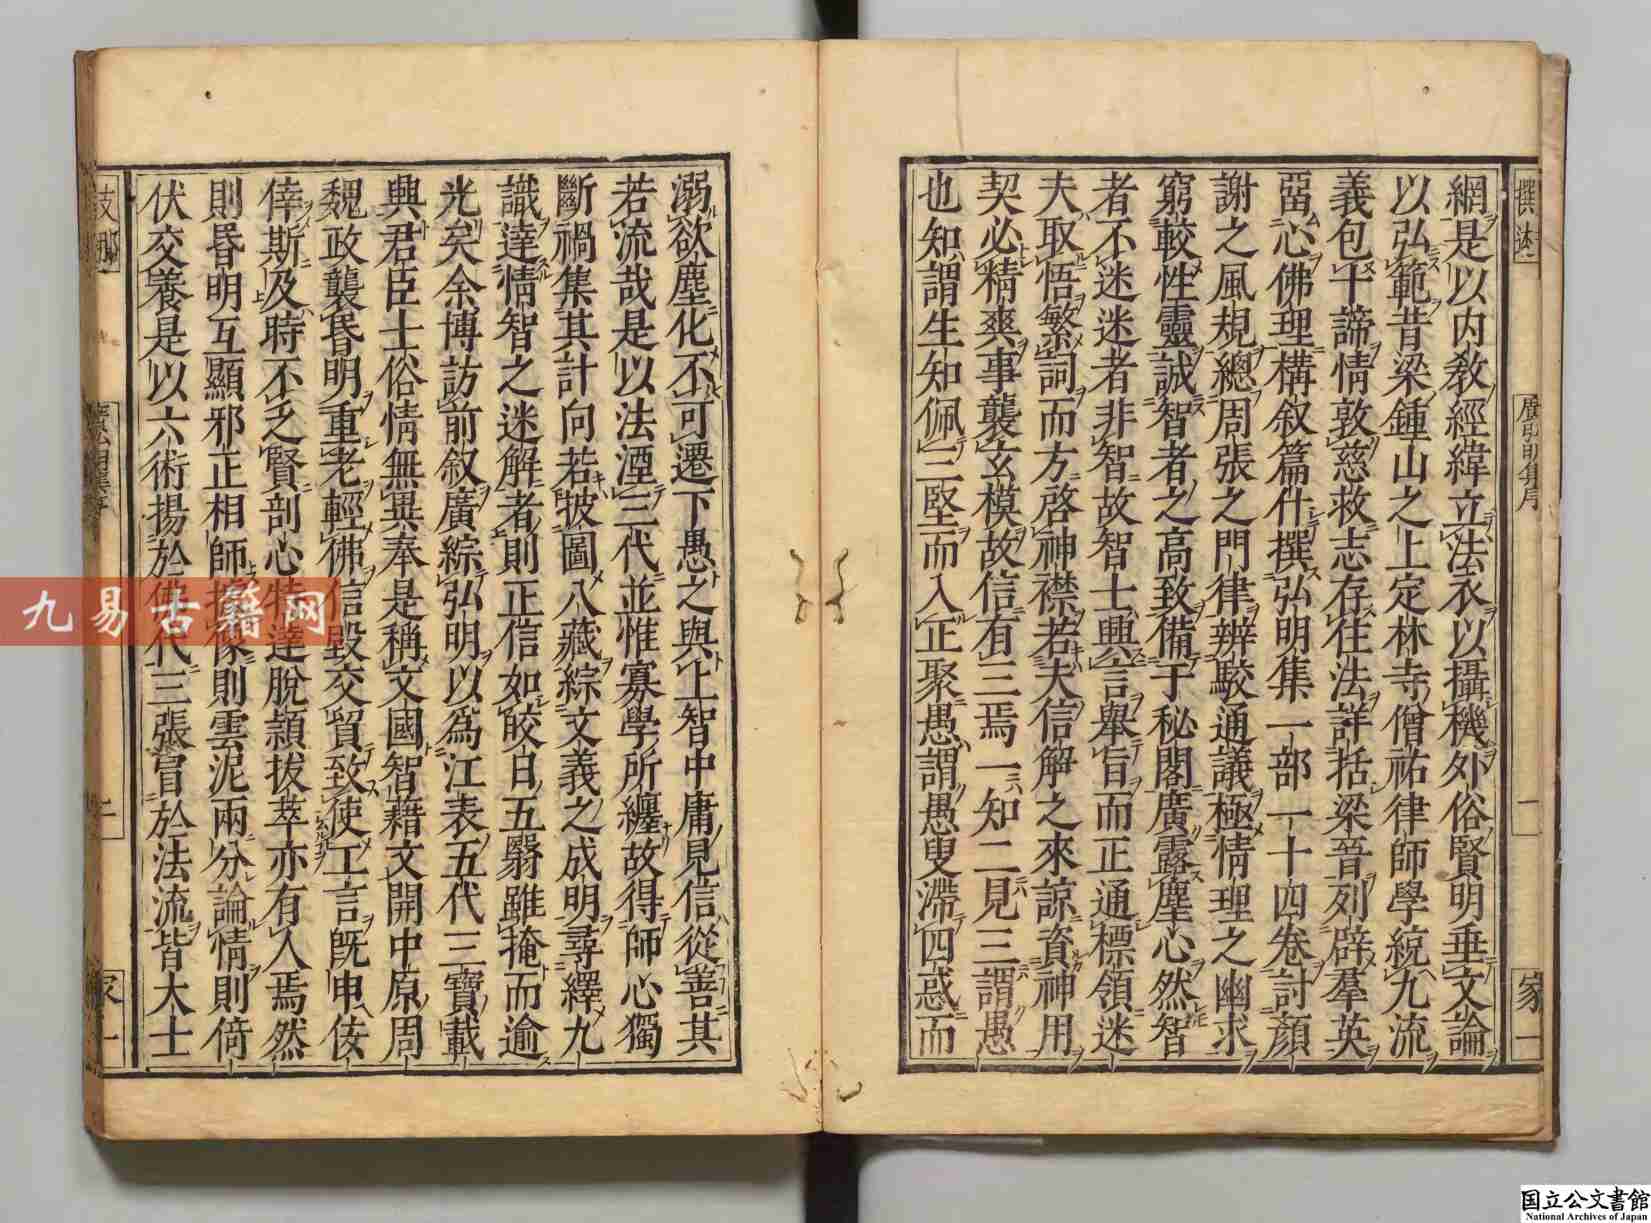 網是以内教經緯立法衣以攝機外俗賢明垂文論
以弘範昔梁鍾山之上定林寺僧祐律師學統九流
義包十諦情敦慈救志存住法詳括梁晉列辟羣英
留心佛理構叙篇什撰弘明集一部一十四卷討顏
謝之風規總周張之門律辨駁通議極情理之幽求
窮較性靈誠智者之高致備于秘閣廣露塵心然智
者不迷迷者非智故智士興言舉旨而正通標領迷
夫取悟繁詞而方啓神襟若夫信解之來諒資神用
契必精爽事襲玄模故信有三焉一知二見三謂愚
也知謂生知佩三堅而入正聚愚謂愚叟滯四惑而
溺欲塵化不可遷下愚之與上智中庸見信從善其
若流哉是以法湮三代並惟寡學所纏故得師心獨
斷禍集其計向若披圖八藏綜文義之成明尋繹九
識達情智之迷解者則正信如皎日五翳雖掩而逾
光矣余博訪前叙廣綜弘明以爲江表五代三寶載
興君臣士俗情無異奉是稱文國智藉文開中原周
魏政襲昏明重老輕佛信毀交貿致使工言既申佞
倖斯及時不乏賢剖心特達脫頴拔萃亦有人焉然
則昏明互顯邪正相師據像則雲泥兩分論情則倚
伏交養是以六術揚於佛代三張冒於法流皆大士
撰述
廣弘明集序
一
家一
九易古籍网
国立公文書館
National Archives of Japan